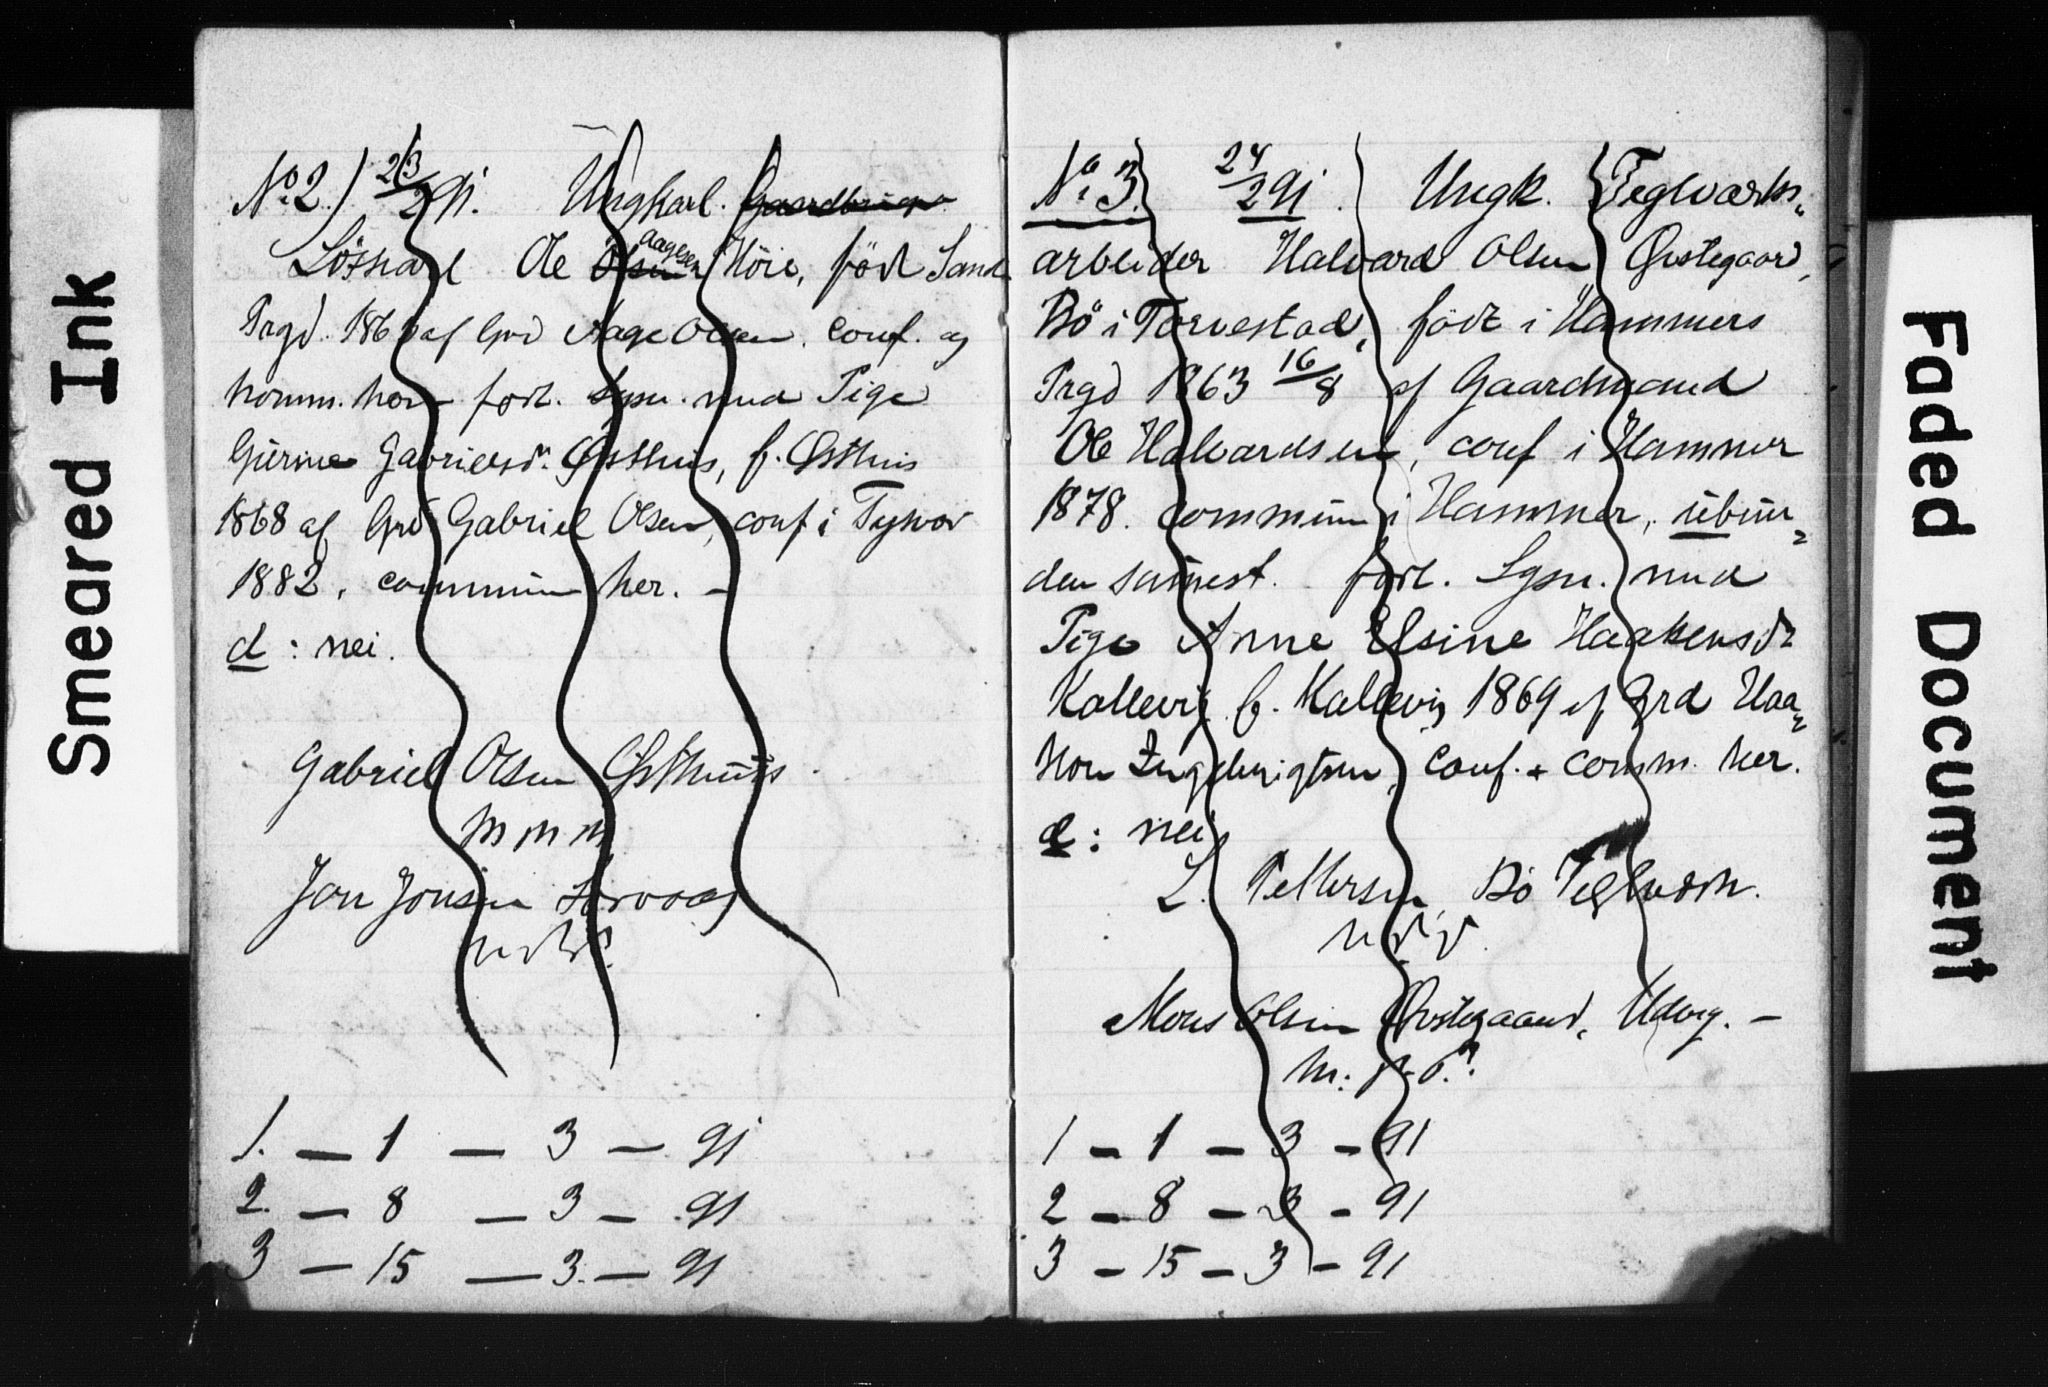 Smeared Ink
No. 2.) 23/2 91. Ungkarl. Gaardbruger
Löskarl Ole Olsen Aagesen Höie, föd Sand
Prgd. 186 af Grd Aage Olsen, conf. og
komm. her forl. Lysn. med Pige
Gurine Gabrielsdr. Østhus, f. Østhus
1868 af Grd Gabriel Olsen, conf i Tysvær
1882, commun her. —
d : nei.
Gabriel Olsen Østhuus.
Jon Jonsen
1. — 1 — 3 — 91
2. — 8 — 3 — 91
3 — 15 — 3. — 91
No. 3. 24/2 91. Ungk. Teglværks-
arbeider Halvard Olsen Øvstegaard,
Bö i Torvestad, födt i Hammers
Prgd 1863 16/8 af Gaardmand
Ole Halvardsen, conf i Hammer
1878. commun i Hammer, ubun-
den sammest. forl. Lysn. med
Pige Anne Elsine Haakensdr
Kallevig f. Kallevig 1869 af Grd Haa-
kon Ingebrigtsen, conf. + comm. her.
d : nei
L. Pettersen, Bö Teglværk.
Mons Olsen Øvstegaard, Udvig. —
1 — 1 — 3 — 91
2 — 8 — 3 — 91
3 — 15 — 3 — 91
Faded Document